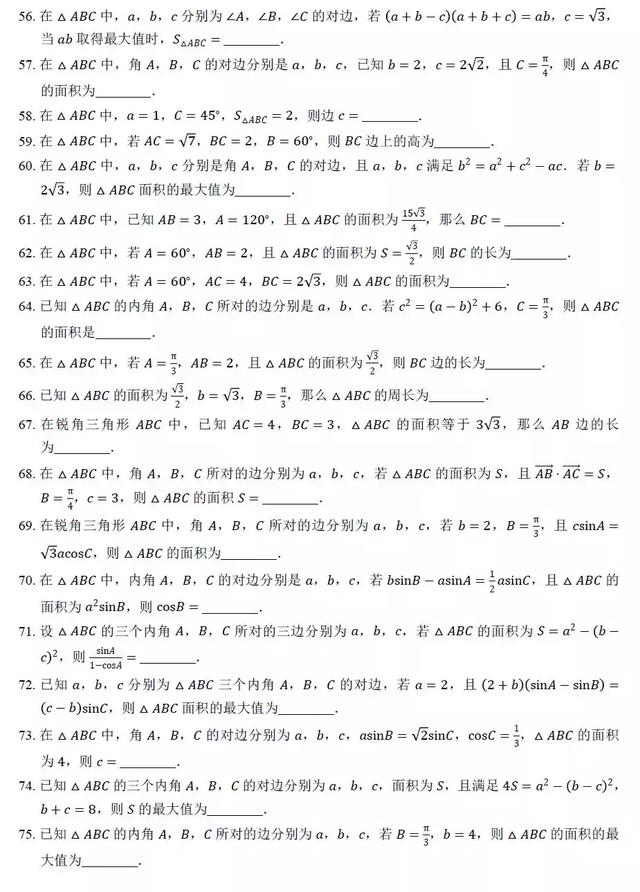 56. 在 △ ABC 中，a，b，c 分别为 ∠A，∠B，∠C 的对边，若 (a + b − c)(a + b + c) = ab，c = √3，
当 ab 取得最大值时，S△ABC = ________．
57. 在 △ ABC 中，角 A，B，C 的对边分别是 a，b，c，已知 b = 2，c = 2√2，且 C = π/4，则 △ ABC
的面积为________．
58. 在 △ ABC 中，a = 1，C = 45°，S△ABC = 2，则边 c = ________．
59. 在 △ ABC 中，若 AC = √7，BC = 2，B = 60°，则 BC 边上的高为________．
60. 在 △ ABC 中，a，b，c 分别是角 A，B，C 的对边，且 a，b，c 满足 b² = a² + c² − ac．若 b =
2√3，则 △ ABC 面积的最大值为________．
61. 在 △ ABC 中，已知 AB = 3，A = 120°，且 △ ABC 的面积为 15√3/4，那么 BC = ________．
62. 在 △ ABC 中，若 A = 60°，AB = 2，且 △ ABC 的面积为 S = √3/2，则 BC 的长为________．
63. 在 △ ABC 中，若 A = 60°，AC = 4，BC = 2√3，则 △ ABC 的面积为________．
64. 已知 △ ABC 的内角 A，B，C 所对的边分别是 a，b，c．若 c² = (a − b)² + 6，C = π/3，则 △ ABC
的面积是________．
65. 在 △ ABC 中，若 A = π/3，AB = 2，且 △ ABC 的面积为 √3/2，则 BC 边的长为________．
66. 已知 △ ABC 的面积为 √3/2，b = √3，B = π/3，那么 △ ABC 的周长为________．
67. 在锐角三角形 ABC 中，已知 AC = 4，BC = 3，△ ABC 的面积等于 3√3，那么 AB 边的长
为________．
68. 在 △ ABC 中，角 A，B，C 所对的边分别为 a，b，c，若 △ ABC 的面积为 S，且 AB⃗ · AC⃗ = S，
B = π/4，c = 3，则 △ ABC 的面积 S = ________．
69. 在锐角三角形 ABC 中，角 A，B，C 所对的边分别为 a，b，c，若 b = 2，B = π/3，且 csinA =
√3acosC，则 △ ABC 的面积为________．
70. 在 △ ABC 中，内角 A，B，C 的对边分别是 a，b，c，若 bsinB − asinA = 1/2 asinC，且 △ ABC 的
面积为 a²sinB，则 cosB = ________．
71. 设 △ ABC 的三个内角 A，B，C 所对的三边分别为 a，b，c，若 △ ABC 的面积为 S = a² − (b −
c)²，则 sinA/(1−cosA) = ________．
72. 已知 a，b，c 分别为 △ ABC 三个内角 A，B，C 的对边，若 a = 2，且 (2 + b)(sinA − sinB) =
(c − b)sinC，则 △ ABC 面积的最大值为________．
73. 在 △ ABC 中，角 A，B，C 的对边分别为 a，b，c，asinB = √2sinC，cosC = 1/3，△ ABC 的面积
为 4，则 c = ________．
74. 已知 △ ABC 的三个内角 A，B，C 的对边分别为 a，b，c，面积为 S，且满足 4S = a² − (b − c)²，
b + c = 8，则 S 的最大值为________．
75. 已知 △ ABC 的内角 A，B，C 所对的边分别为 a，b，c，若 B = π/3，b = 4，则 △ ABC 的面积的最
大值为________．